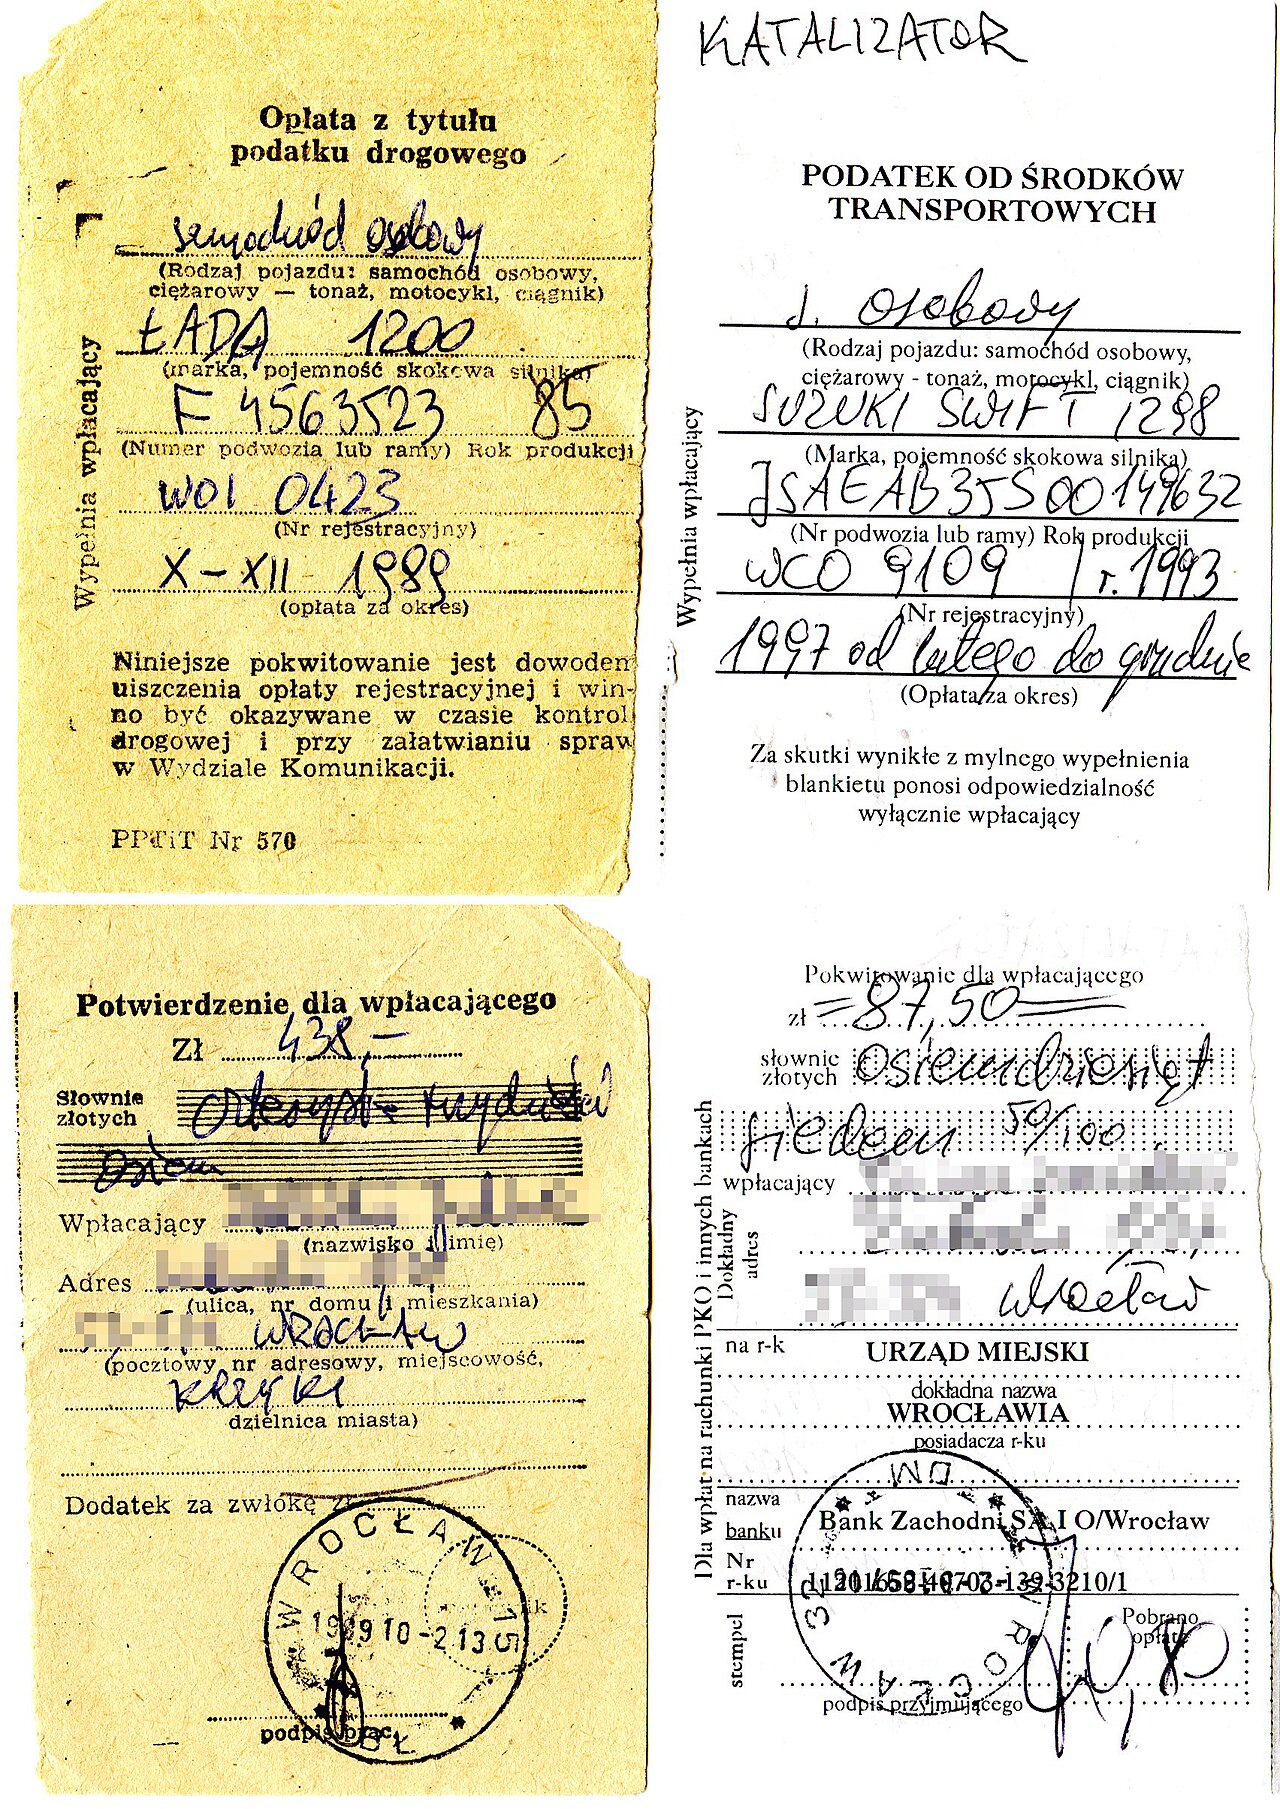 Opłata z tytułu
podatku drogowego
samochód osobowy
(Rodzaj pojazdu: samochód osobowy,
ciężarowy — tonaż, motocykl, ciągnik)
ŁADA 1200
(marka, pojemność skokowa silnika)
F 4563523 85
(Numer podwozia lub ramy) Rok produkcji
WOI 0423
(Nr rejestracyjny)
X-XII 1989
(opłata za okres)
Wypełnia wpłacający
Niniejsze pokwitowanie jest dowodem
uiszczenia opłaty rejestracyjnej i win-
no być okazywane w czasie kontrol
drogowej i przy załatwianiu spraw
w Wydziale Komunikacji.
PPTiT Nr 570
KATALIZATOR
PODATEK OD ŚRODKÓW
TRANSPORTOWYCH
s. osobowy
(Rodzaj pojazdu: samochód osobowy,
ciężarowy - tonaż, motocykl, ciągnik)
SUZUKI SWIFT 1298
(Marka, pojemność skokowa silnika)
JSAEAB35S00149632
(Nr podwozia lub ramy) Rok produkcji
WCO 9109 / r. 1993
(Nr rejestracyjny)
1997 od lutego do grudnia
(Opłata za okres)
Wypełnia wpłacający
Za skutki wynikłe z mylnego wypełnienia
blankietu ponosi odpowiedzialność
wyłącznie wpłacający
Potwierdzenie dla wpłacającego
Zł 438,-
Słownie
złotych czterysta trzydzieści
osiem
Wpłacający
(nazwisko i imię)
Adres
(ulica, nr domu i mieszkania)
WROCŁAW
(pocztowy nr adresowy, miejscowość,
KRZYKI
dzielnica miasta)
Dodatek za zwłokę zł
WROCŁAW 15
1989 10 -2.13
podpis prac.
Pokwitowanie dla wpłacającego
zł =87,50=
słownie
złotych osiemdziesiąt
siedem 50/100.
wpłacający
Dokładny
adres
Wrocław
na r-k
URZĄD MIEJSKI
dokładna nazwa
WROCŁAWIA
posiadacza r-ku
nazwa
banku Bank Zachodni SA I O/Wrocław
Nr
r-ku
Dla wpłat na rachunki PKO i innych bankach
WROCŁAW 32
DM
stempel
Pobrano
opłatę
0,80
podpis przyjmującego